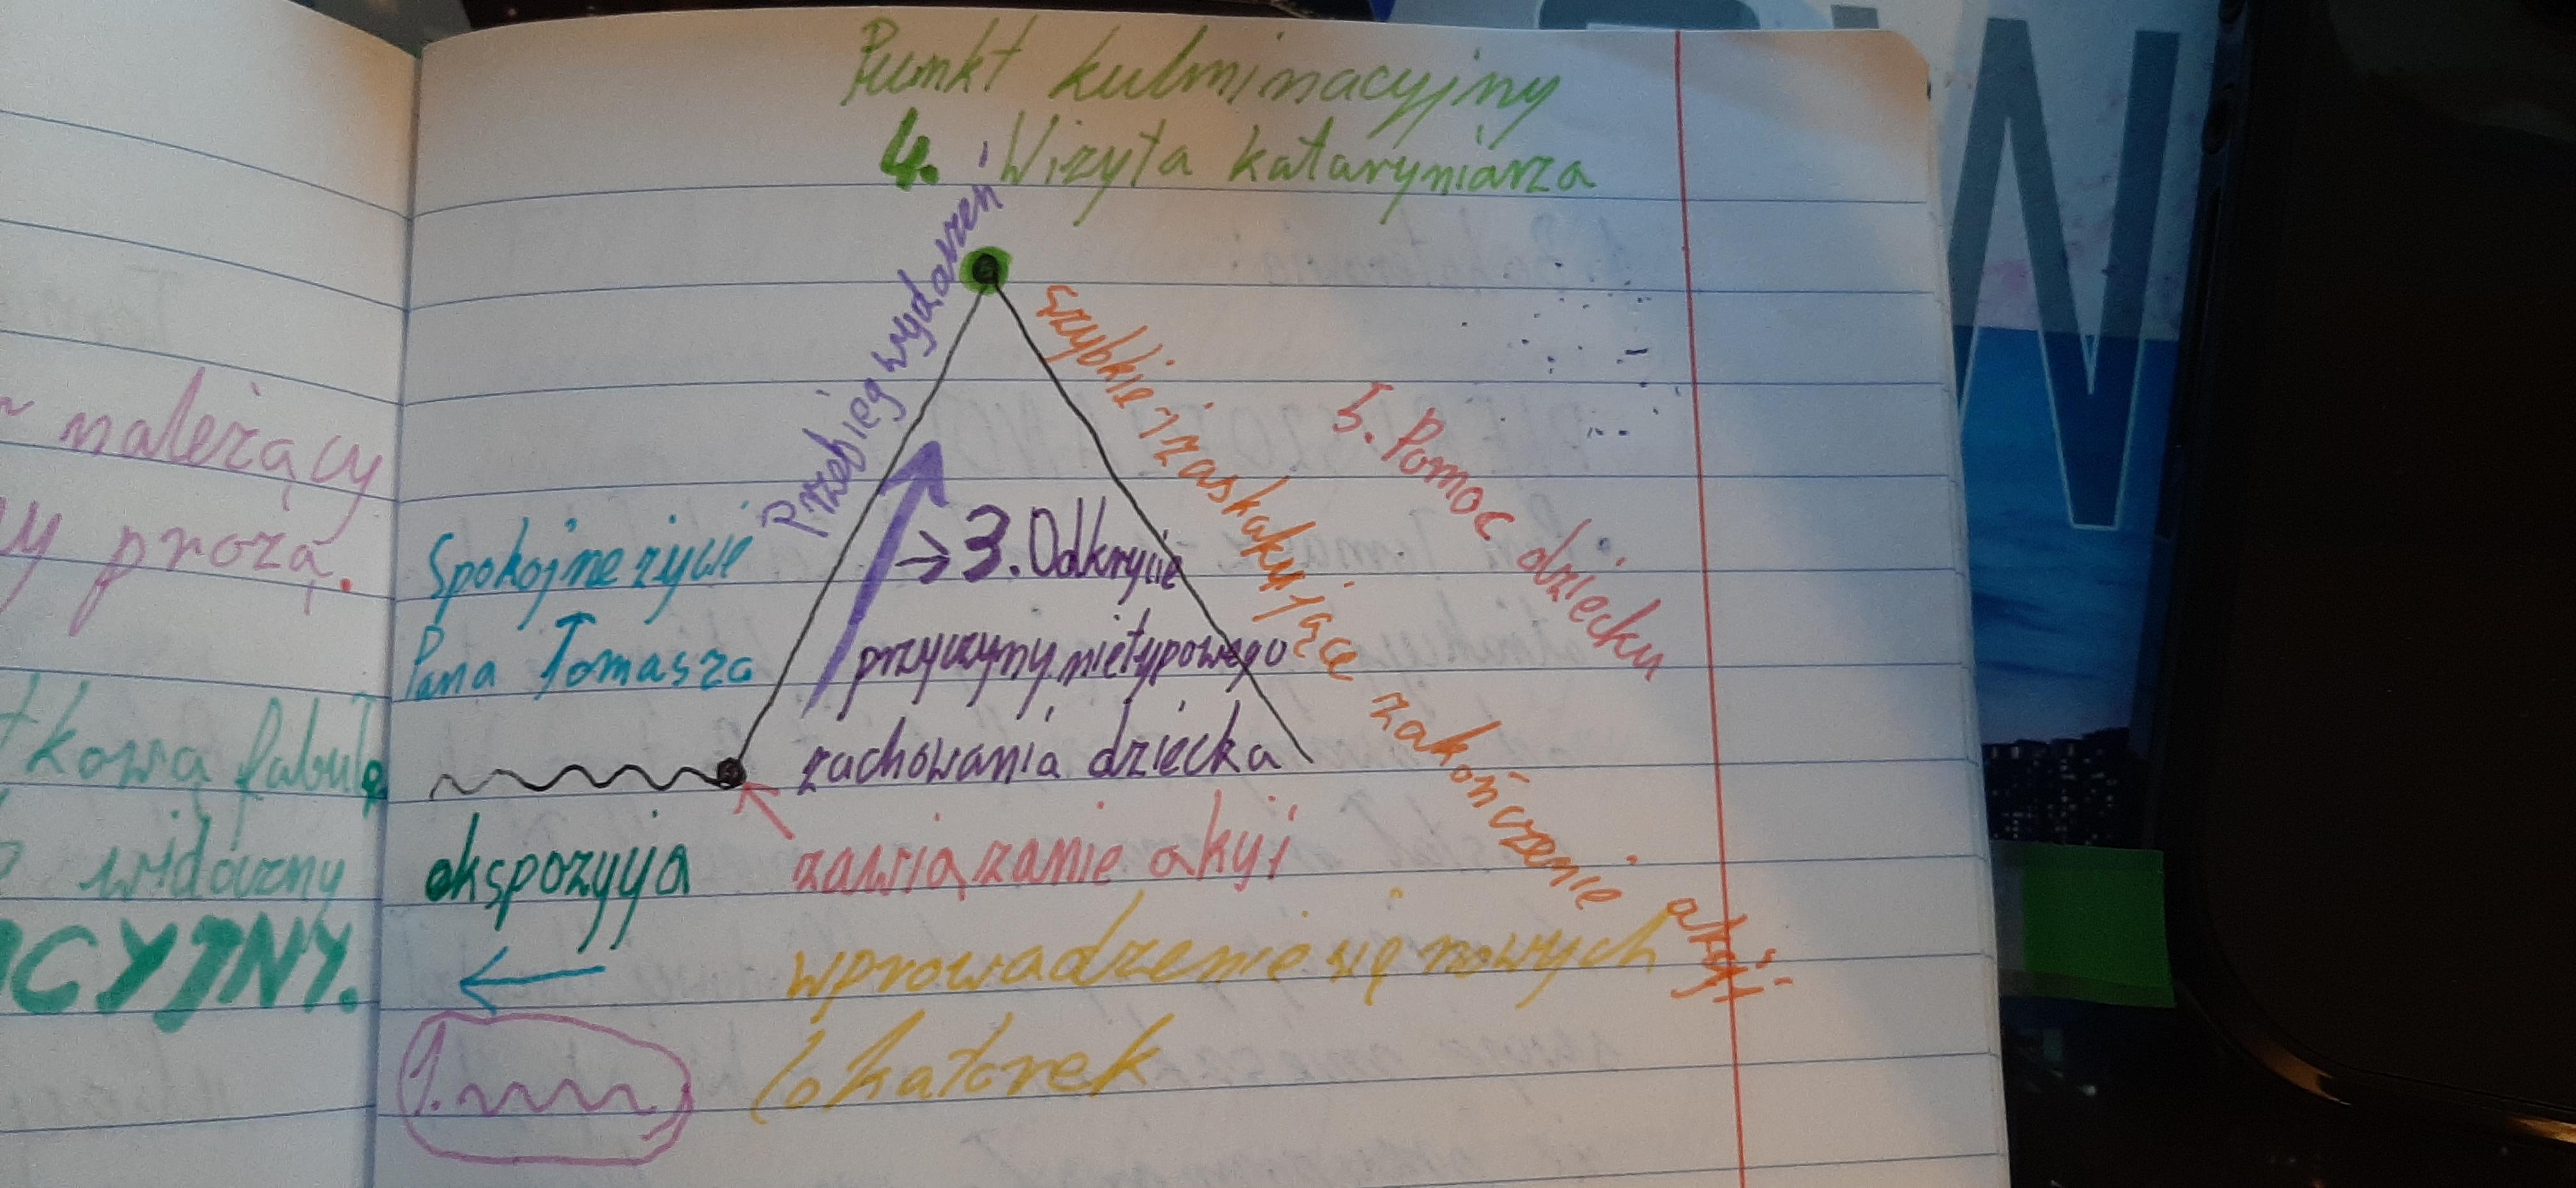 należący
prozą.
fabułę
widoczny
CYJNY.
Punkt kulminacyjny
4. Wizyta kataryniarza
Przebieg wydarzeń
szybkie i zaskakujące zakończenie akcji
5. Pomoc dziecku
Spokojne życie
Pana Tomasza
→ 3. Odkrycie
przyczyny nietypowego
zachowania dziecka
ekspozycja
zawiązanie akcji
wprowadzenie się nowych
lokatorek
1.
W